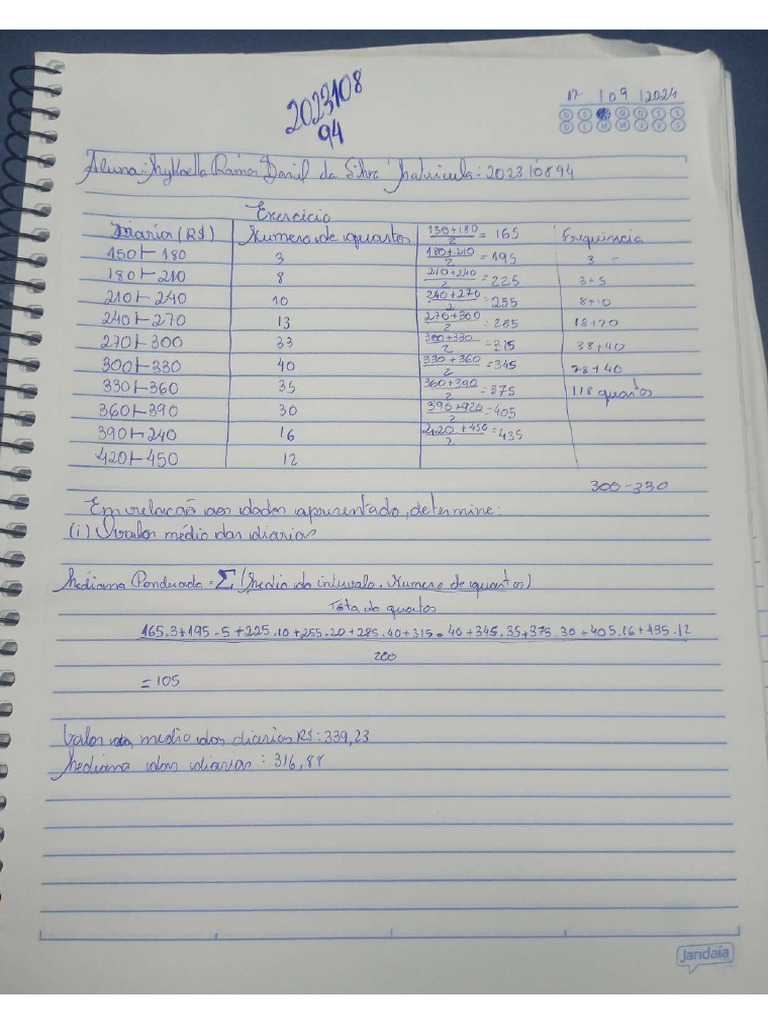 2023108
94
17 109 12024
D S T Q Q S S
D L M M J V S
Aluna: Ramos Daniel da Silva Matricula: 202310894
Exercício
Diaria (R$) Numero de quartos 150+180/2 = 165 Frequencia
150⊢180 3 180+210/2 = 195 3 -
180⊢210 8 210+240/2 = 225 3+5
210⊢240 10 240+270/2 = 255 8+10
240⊢270 13 270+300/2 = 285 18+20
270⊢300 33 300+330/2 = 315 38+40
300⊢330 40 330+360/2 = 345 78+40
330⊢360 35 360+390/2 = 375 118 quartos
360⊢390 30 390+420/2 = 405
390⊢240 16 420+450/2 = 435
420⊢450 12
300-330
Em relação aos dados apresentado, determine:
(i) O valor médio das diarias
Mediana Ponderada = Σ (Media do intervalo . Numero de quartos)
Total de quartos
165.3+195.5+225.10+255.20+285.40+315.40+345.35+375.30+405.16+435.12
200
= 105
Valor medio das diarias R$: 339,23
Mediana das diarias : 316,88
Jandaia